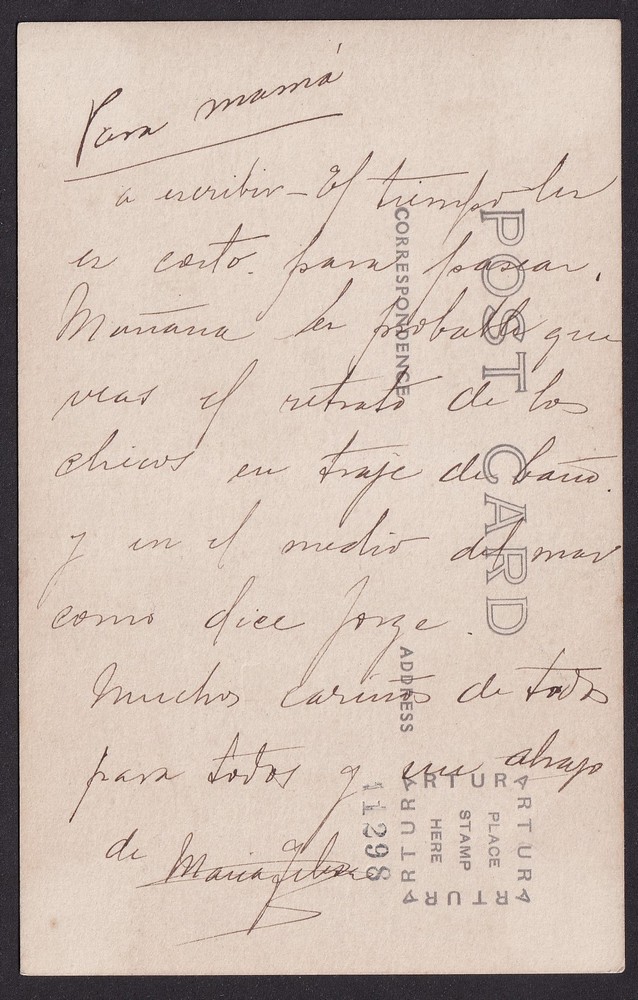 Para mamá
a escribir - El tiempo les
es corto para pasear.
Mañana es probable que
veas el retrato de los
chicos en traje de baño
y en el medio del mar
como dice Jorge.
Muchos cariños de todos
para todos y un abrazo
de Maria
POST CARD
CORRESPONDENCE
ADDRESS
ARTURA
ARTURA
ARTURA
ARTURA
PLACE
STAMP
HERE
11298